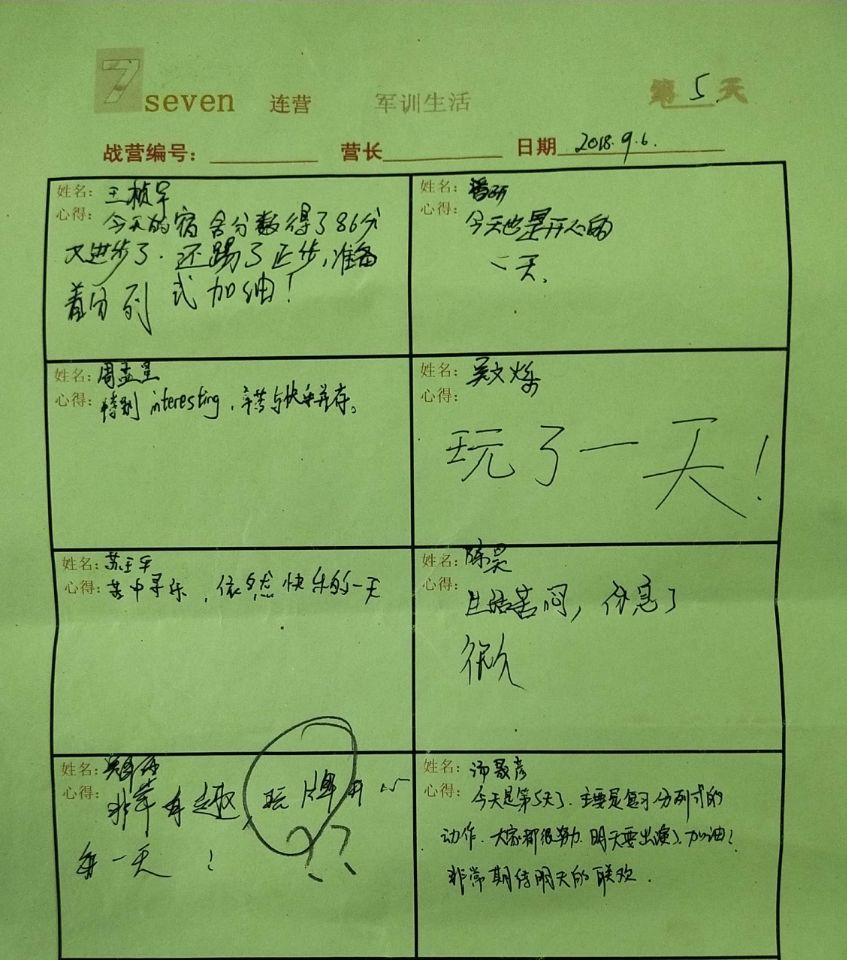 7 seven 连营 军训生活 第 5 天
战营编号: 营长 日期 2018.9.6.
姓名: 王桢宇
心得: 今天的宿舍分数得了86分
大进步了.还踢了正步,准备
着分列式加油!
姓名:
心得: 今天也是开心的
一天.
姓名: 周孟星
心得: 特别 interesting, 辛苦与快乐并存。
姓名: 吴文烁
心得:
玩了一天!
姓名: 苏王华
心得: 苦中寻乐,依然快乐的一天
姓名: 陈昊
心得: 生活苦闷,休息了
很久
姓名:
心得: 非常有趣,玩牌用心
每一天!
??
姓名: 汤晟彦
心得: 今天是第5天了.主要是复习分列式的
动作.大家都很努力.明天要出演,加油!
非常期待明天的联欢.